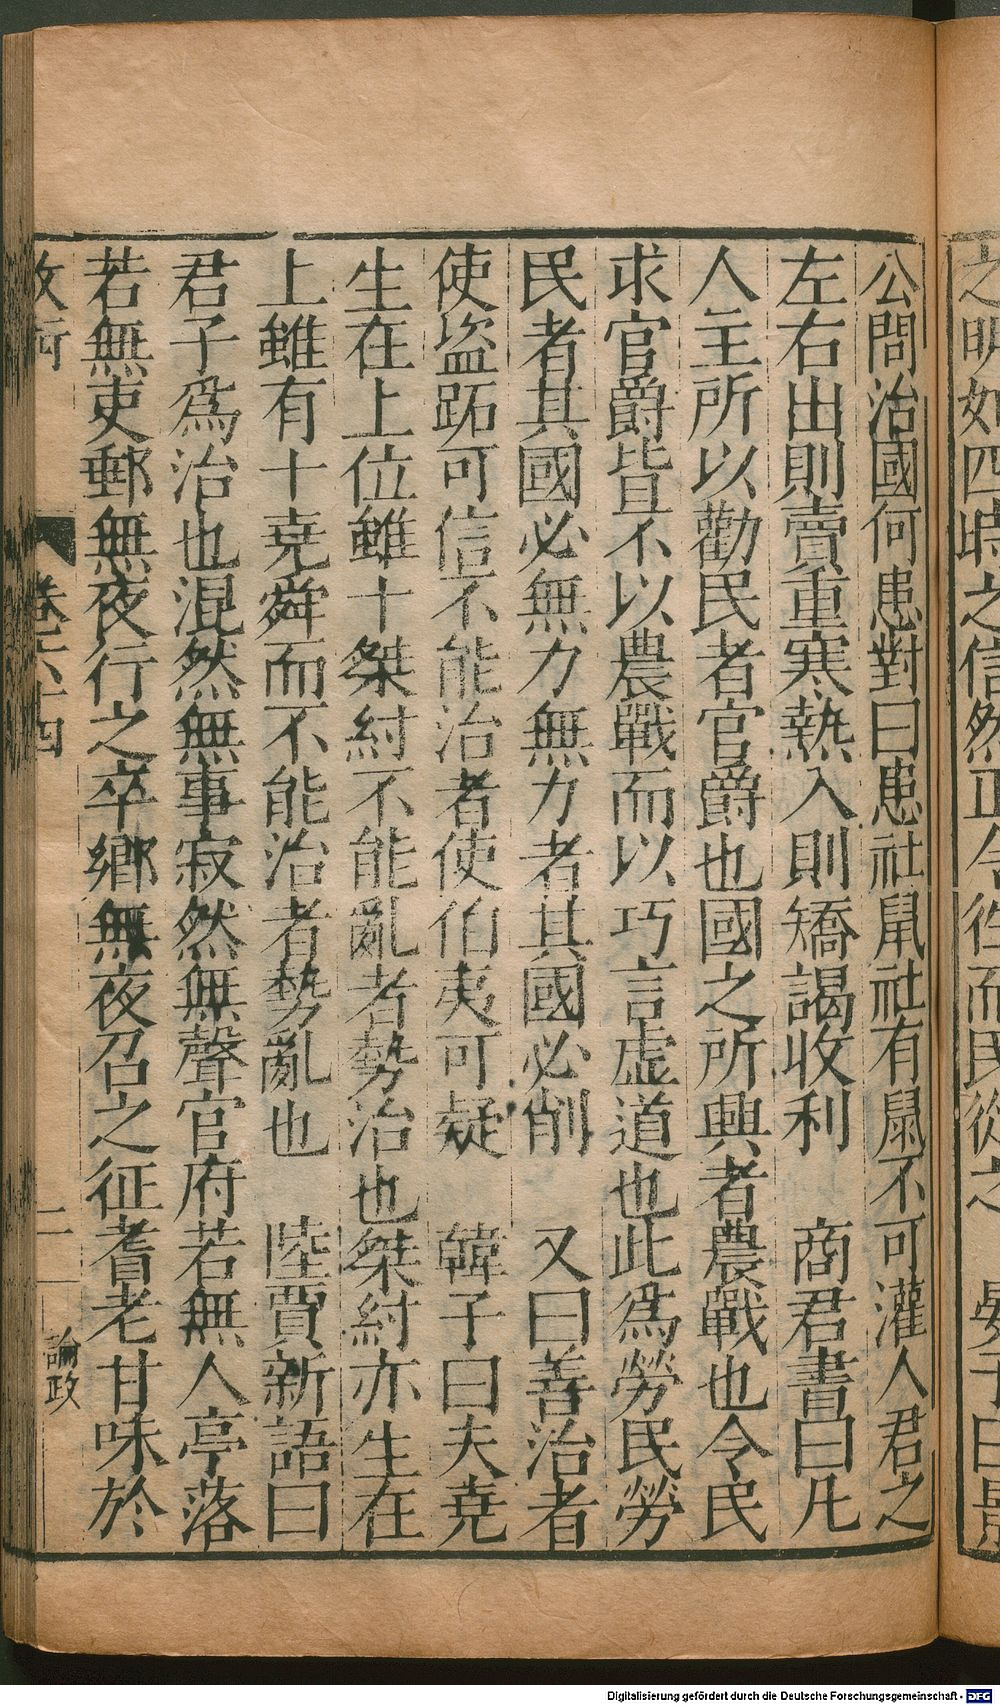 之明如四時之信然正令徃而民從之　晏子曰景
公問治國何患對曰患社鼠社有鼠不可灌人君之
左右出則賣重寒熱入則矯謁收利　商君書曰凡
人主所以勸民者官爵也國之所興者農戰也令民
求官爵皆不以農戰而以巧言虛道也此爲勞民勞
民者其國必無力無力者其國必削　又曰善治者
使盜跖可信不能治者使伯夷可疑　韓子曰夫堯
生在上位雖十桀紂不能亂者勢治也桀紂亦生在
上雖有十堯舜而不能治者勢亂也　陸賈新語曰
君子爲治也混然無事寂然無聲官府若無人亭落
若無吏郵無夜行之卒鄉無夜召之征耆老甘味於
卷六十四　二　論政
Digitalisierung gefördert durch die Deutsche Forschungsgemeinschaft - DFG